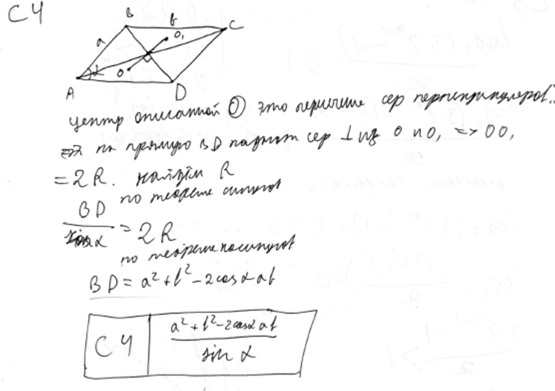 С4
B b C
a O₁
α O
A D
центр описанной O это пересечение сер перпендикуляров
на прямую BD падают сер ⊥ из O и O₁ => OO₁
= 2R. найдём R
по теореме синусов
BD / sin α = 2R
по теореме косинусов
BD = a² + b² - 2cos α ab
С4 | a² + b² - 2cos α ab / sin α